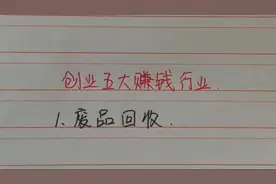 创业五大赚钱行业.
1、废品回收.